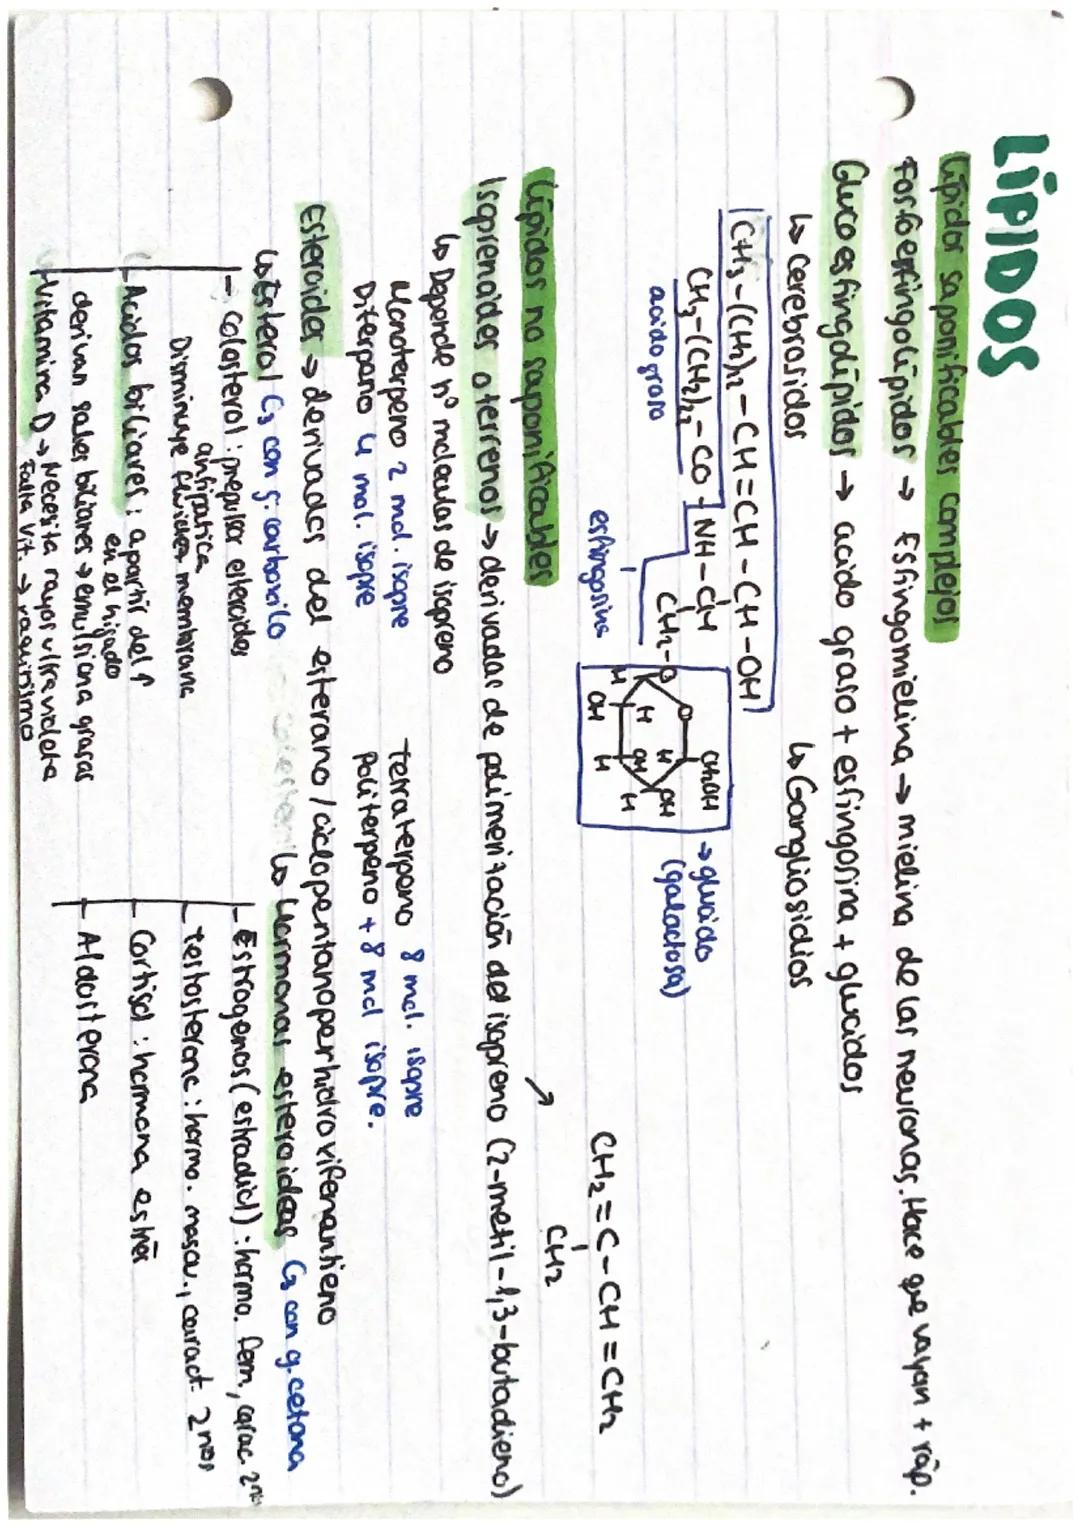 LÍPIDOS
Lípidos saponificables complejos
Fosfoesfingolípidos → Esfingomielina → mielina de las neuronas. Hace que vayan + ráp.
Glucoesfingolípidos → acido graso + esfingosina + glucidos
↳ Cerebrosidos ↳ Gangliosidios
CH3-(CH2)12-CH=CH-CH-OH
CH3-(CH2)22-CO NH-CH
acido graso CH2-O
esfingosina
CH2OH
O
H
H
OH
OH
H
H
OH
H
→ glucido
(galactosa)
CH2=C-CH=CH2
CH2
Lípidos no saponificables
Isoprenoides o terrenos → derivadas de polimerización del isopreno (2-metil-1,3-butadieno)
↳ Depende nº moleculas de isopreno
Monoterpeno 2 mol. isopre Tetraterpeno 8 mol. isopre
Diterpeno 4 mol. isopre Politerpeno + 8 mol isopre.
Esteroides → derivados del esterano / ciclopentanoperhidrofenantieno
↳ Esterol C3 con g. carboxilo ↳ Hormonas esteroideas C3 con g. cetona
- colesterol: precursor esteroides
anfipatica
Disminuye fluidez membrana
Acidos biliares: a partir del ↑
en el higado
derivan sales biliares → emulsiona grasas
Vitamina D → Necesita rayos ultravioleta
Falta Vit. → raquitismo
Estrogenos (estradiol): hormo. fem., carac. 2nos
Testosterona: hormo. mascu., caract. 2nos
Cortisol: hormona estrés
Aldosterona